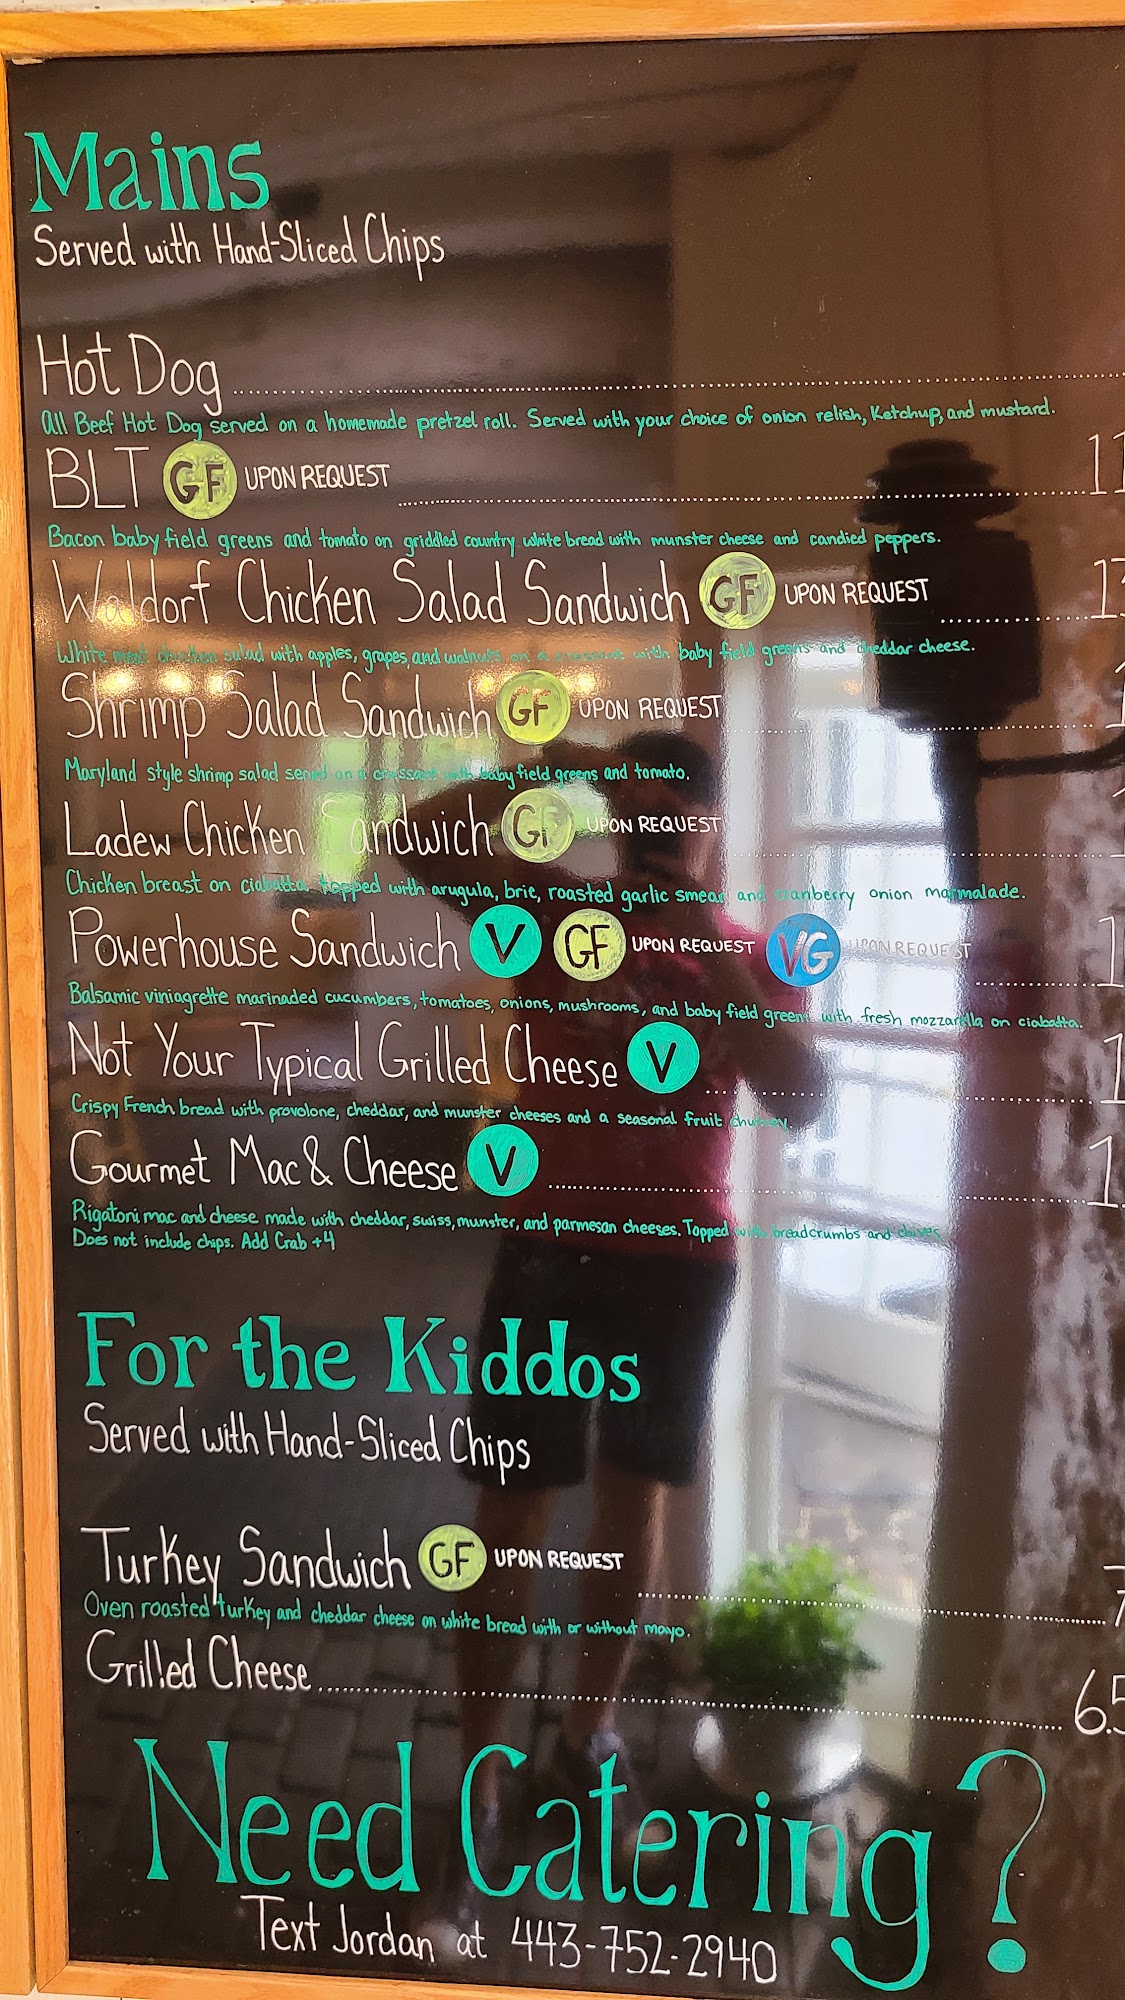 Mains
Served with Hand-Sliced Chips
Hot Dog
All Beef Hot Dog served on a homemade pretzel roll. Served with your choice of onion relish, Ketchup, and mustard.
BLT GF UPON REQUEST 11
Bacon baby field greens and tomato on griddled country white bread with munster cheese and candied peppers.
Waldorf Chicken Salad Sandwich GF UPON REQUEST 13
White meat chicken salad with apples, grapes, and walnuts on a croissant with baby field greens and cheddar cheese.
Shrimp Salad Sandwich GF UPON REQUEST 1
Maryland style shrimp salad served on a croissant with baby field greens and tomato.
Ladew Chicken Sandwich GF UPON REQUEST
Chicken breast on ciabatta topped with arugula, brie, roasted garlic smear and cranberry onion marmalade.
Powerhouse Sandwich V GF UPON REQUEST VG UPON REQUEST 1
Balsamic viniagrette marinaded cucumbers, tomatoes, onions, mushrooms, and baby field greens with fresh mozzarella on ciabatta.
Not Your Typical Grilled Cheese V 1
Crispy French bread with provolone, cheddar, and munster cheeses and a seasonal fruit chutney.
Gourmet Mac & Cheese V 1
Rigatoni mac and cheese made with cheddar, swiss, munster, and parmesan cheeses. Topped with breadcrumbs and chives.
Does not include chips. Add Crab +4
For the Kiddos
Served with Hand-Sliced Chips
Turkey Sandwich GF UPON REQUEST 7
Oven roasted turkey and cheddar cheese on white bread with or without mayo.
Grilled Cheese 6.5
Need Catering?
Text Jordan at 443-752-2940